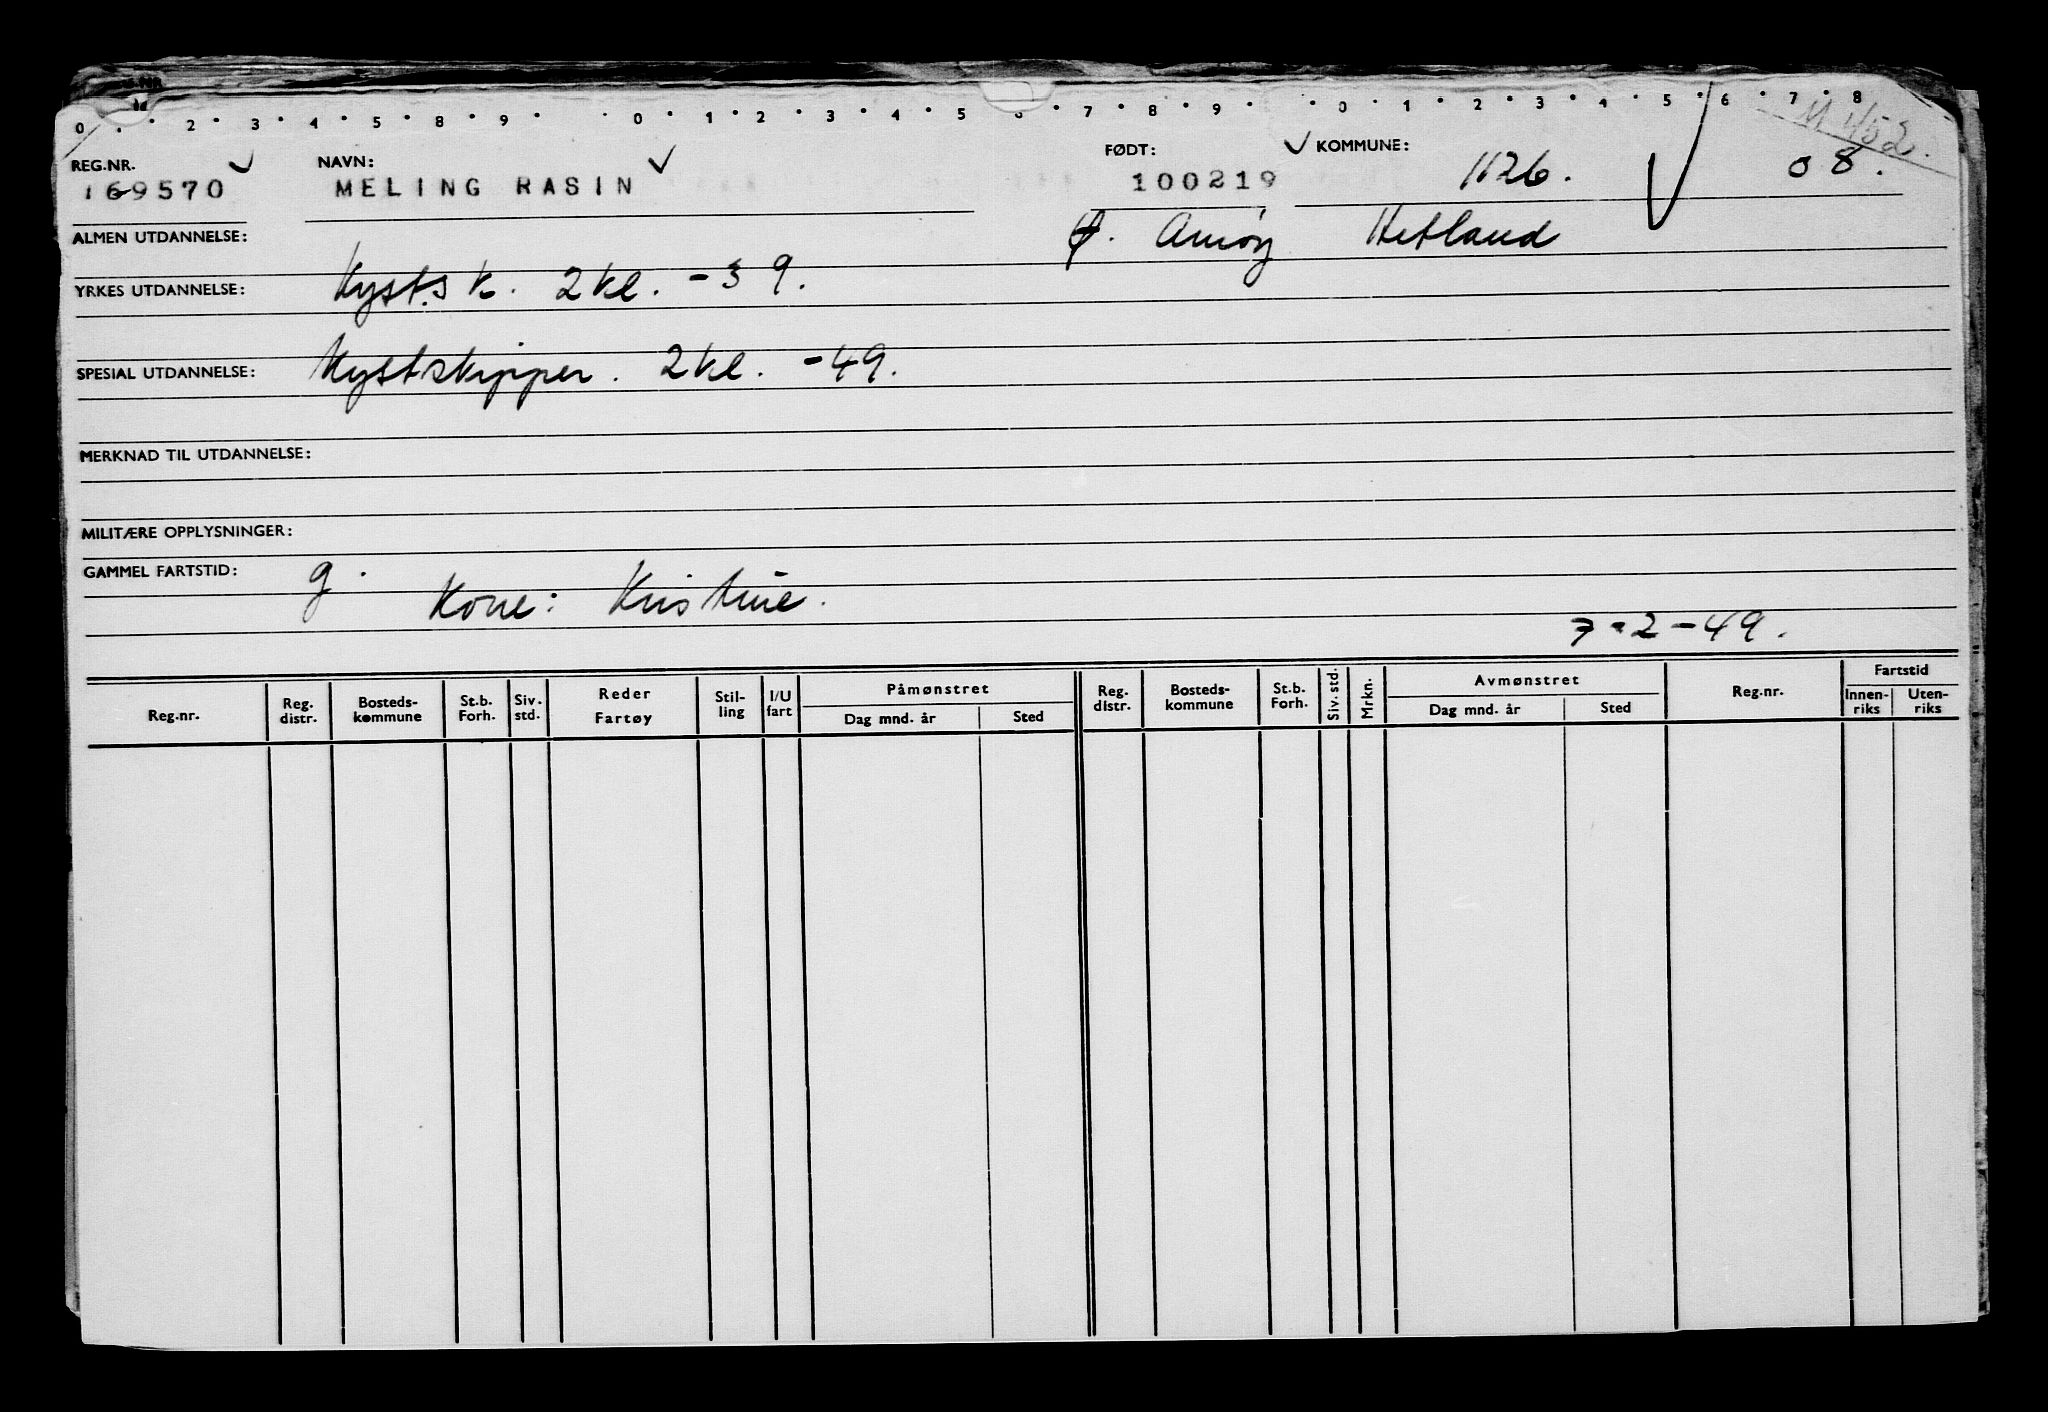 0 . . 2 . 3 . 4 . 5 . 8 . 9 . 0 . 1 . 2 . 3 . 4 . 5 . 6 . 7 . 8 . 9 . . 0 . 1 . 2 . 3 . 4 . 5 . 6 . 7 . 8
M 1/52.
REG.NR. NAVN: FØDT: KOMMUNE:
169570 MELING RASIN 100219 1126. 08.
ALMEN UTDANNELSE: f. Amøy Hetland
YRKES UTDANNELSE: Kyst.sk. 2 kl. -39.
SPESIAL UTDANNELSE: Kystskipper. 2 kl. -49.
MERKNAD TIL UTDANNELSE:
MILITÆRE OPPLYSNINGER:
GAMMEL FARTSTID: g.
Kone: Kristine.
7-2-49.
Reg.nr. Reg. distr. Bosteds-kommune St.b. Forh. Siv. std. Reder Fartøy Stil-ling I/U fart Påmønstret Dag mnd. år Sted Reg. distr. Bosteds-kommune St.b. Forh. Siv. std. Mrkn. Avmønstret Dag mnd. år Sted Reg.nr. Fartstid Innen-riks Uten-riks